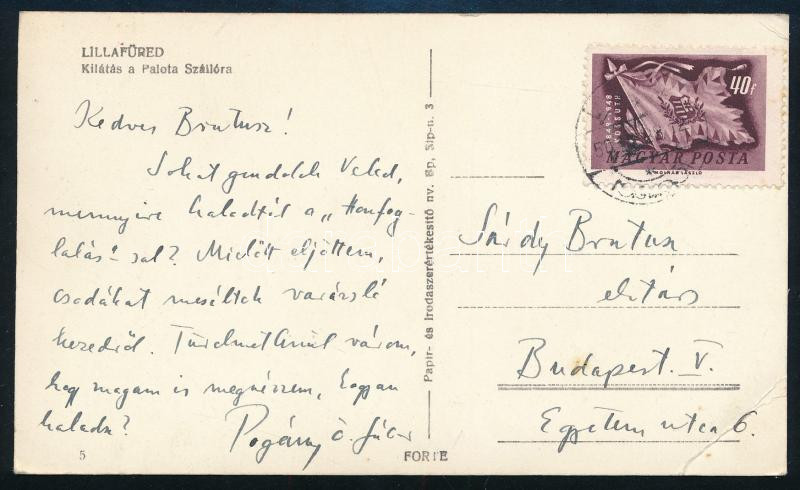 LILLAFÜRED
Kilátás a Palota Szállóra
Kedves Brutusz!
Sokat gondolok Veled,
mennyire haladtál a „Honfog-
lalás"-sal? Mielőtt eljöttem,
csodákat meséltek varázsló
kezedről. Türelmetlenül várom,
hogy magam is megnézzem, hogyan
haladsz?
Pogány Ö. Gábor
5
FORTE
Papir- és irodaszerértékesitő nv. Bp, Sip-u. 3
40f
1848-1948
KOSSUTH
MAGYAR POSTA
MOLNÁR LÁSZLÓ
Sárdy Brutus
elvtárs
Budapest. V.
Egyetem utca 6.